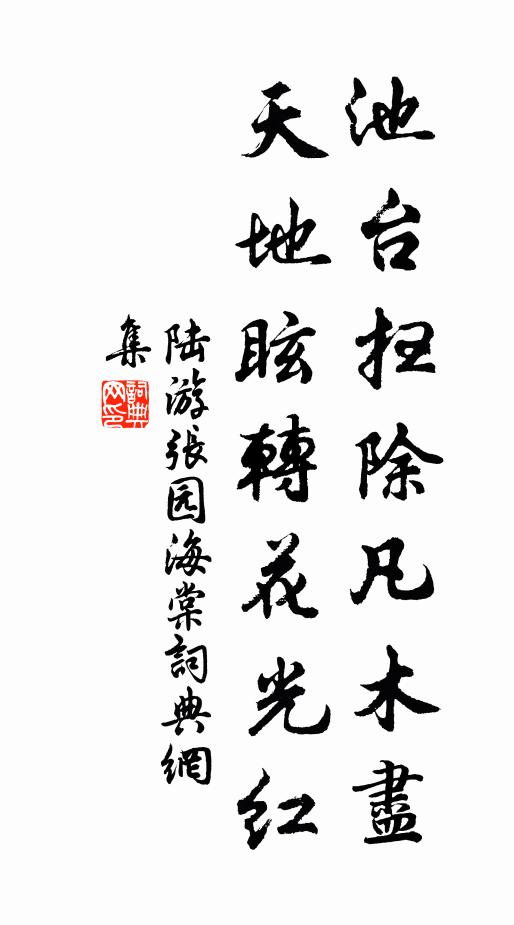 池台扫除凡木盡
天地眩轉花光红
陆游張园海棠詞典網
集
詞典
网印